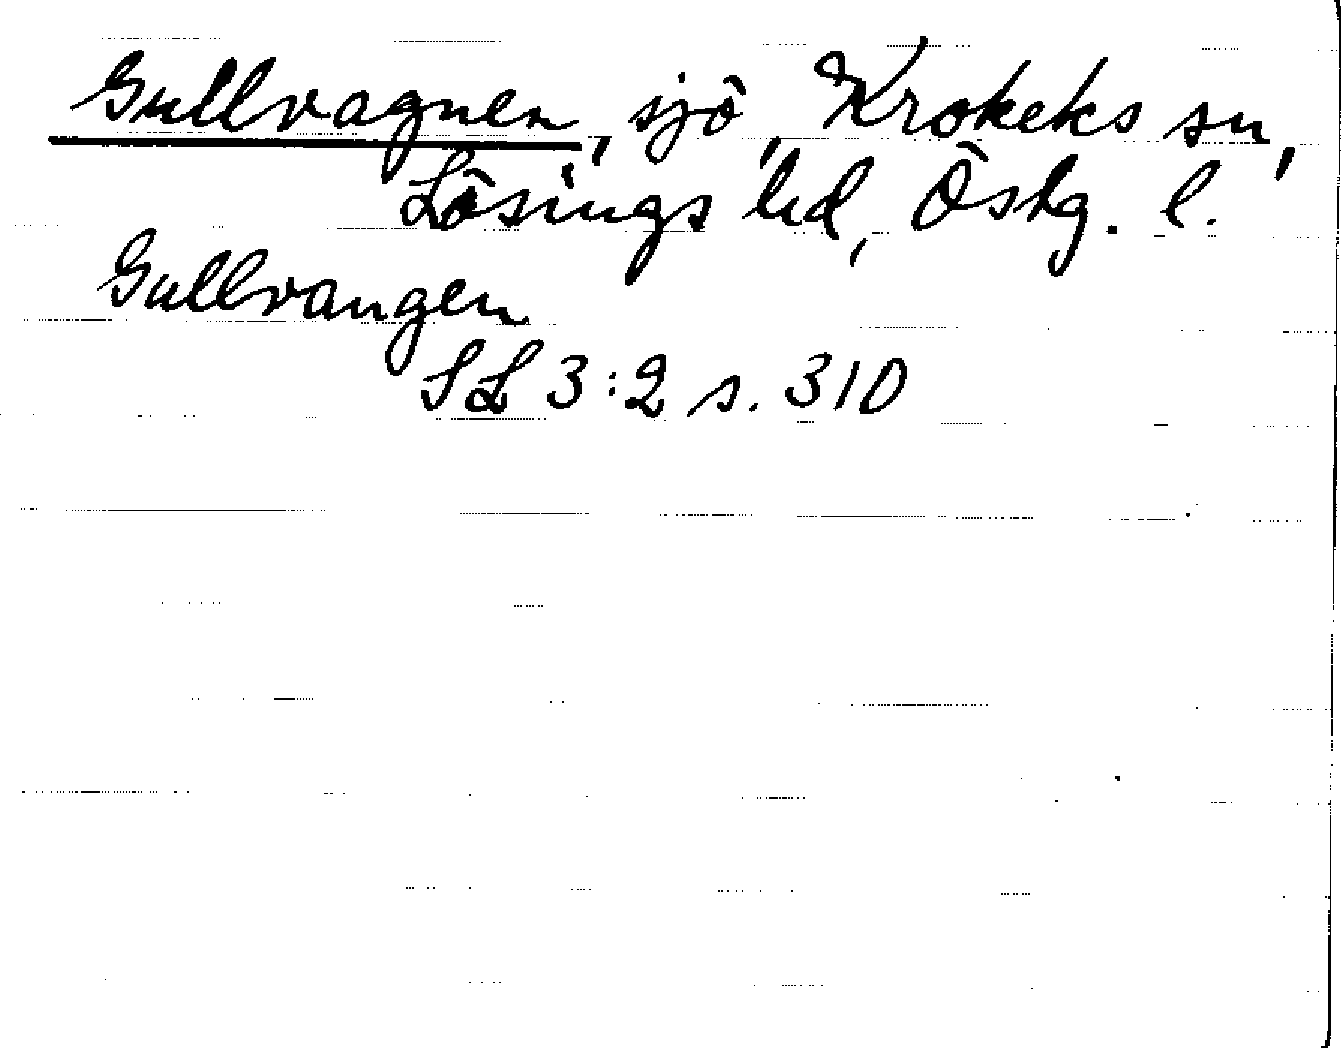 Gullvagnen, sjö, Krokeks sn,
Lösings hd, Östg. l.
Gullvangen
SL 3:2 s. 310